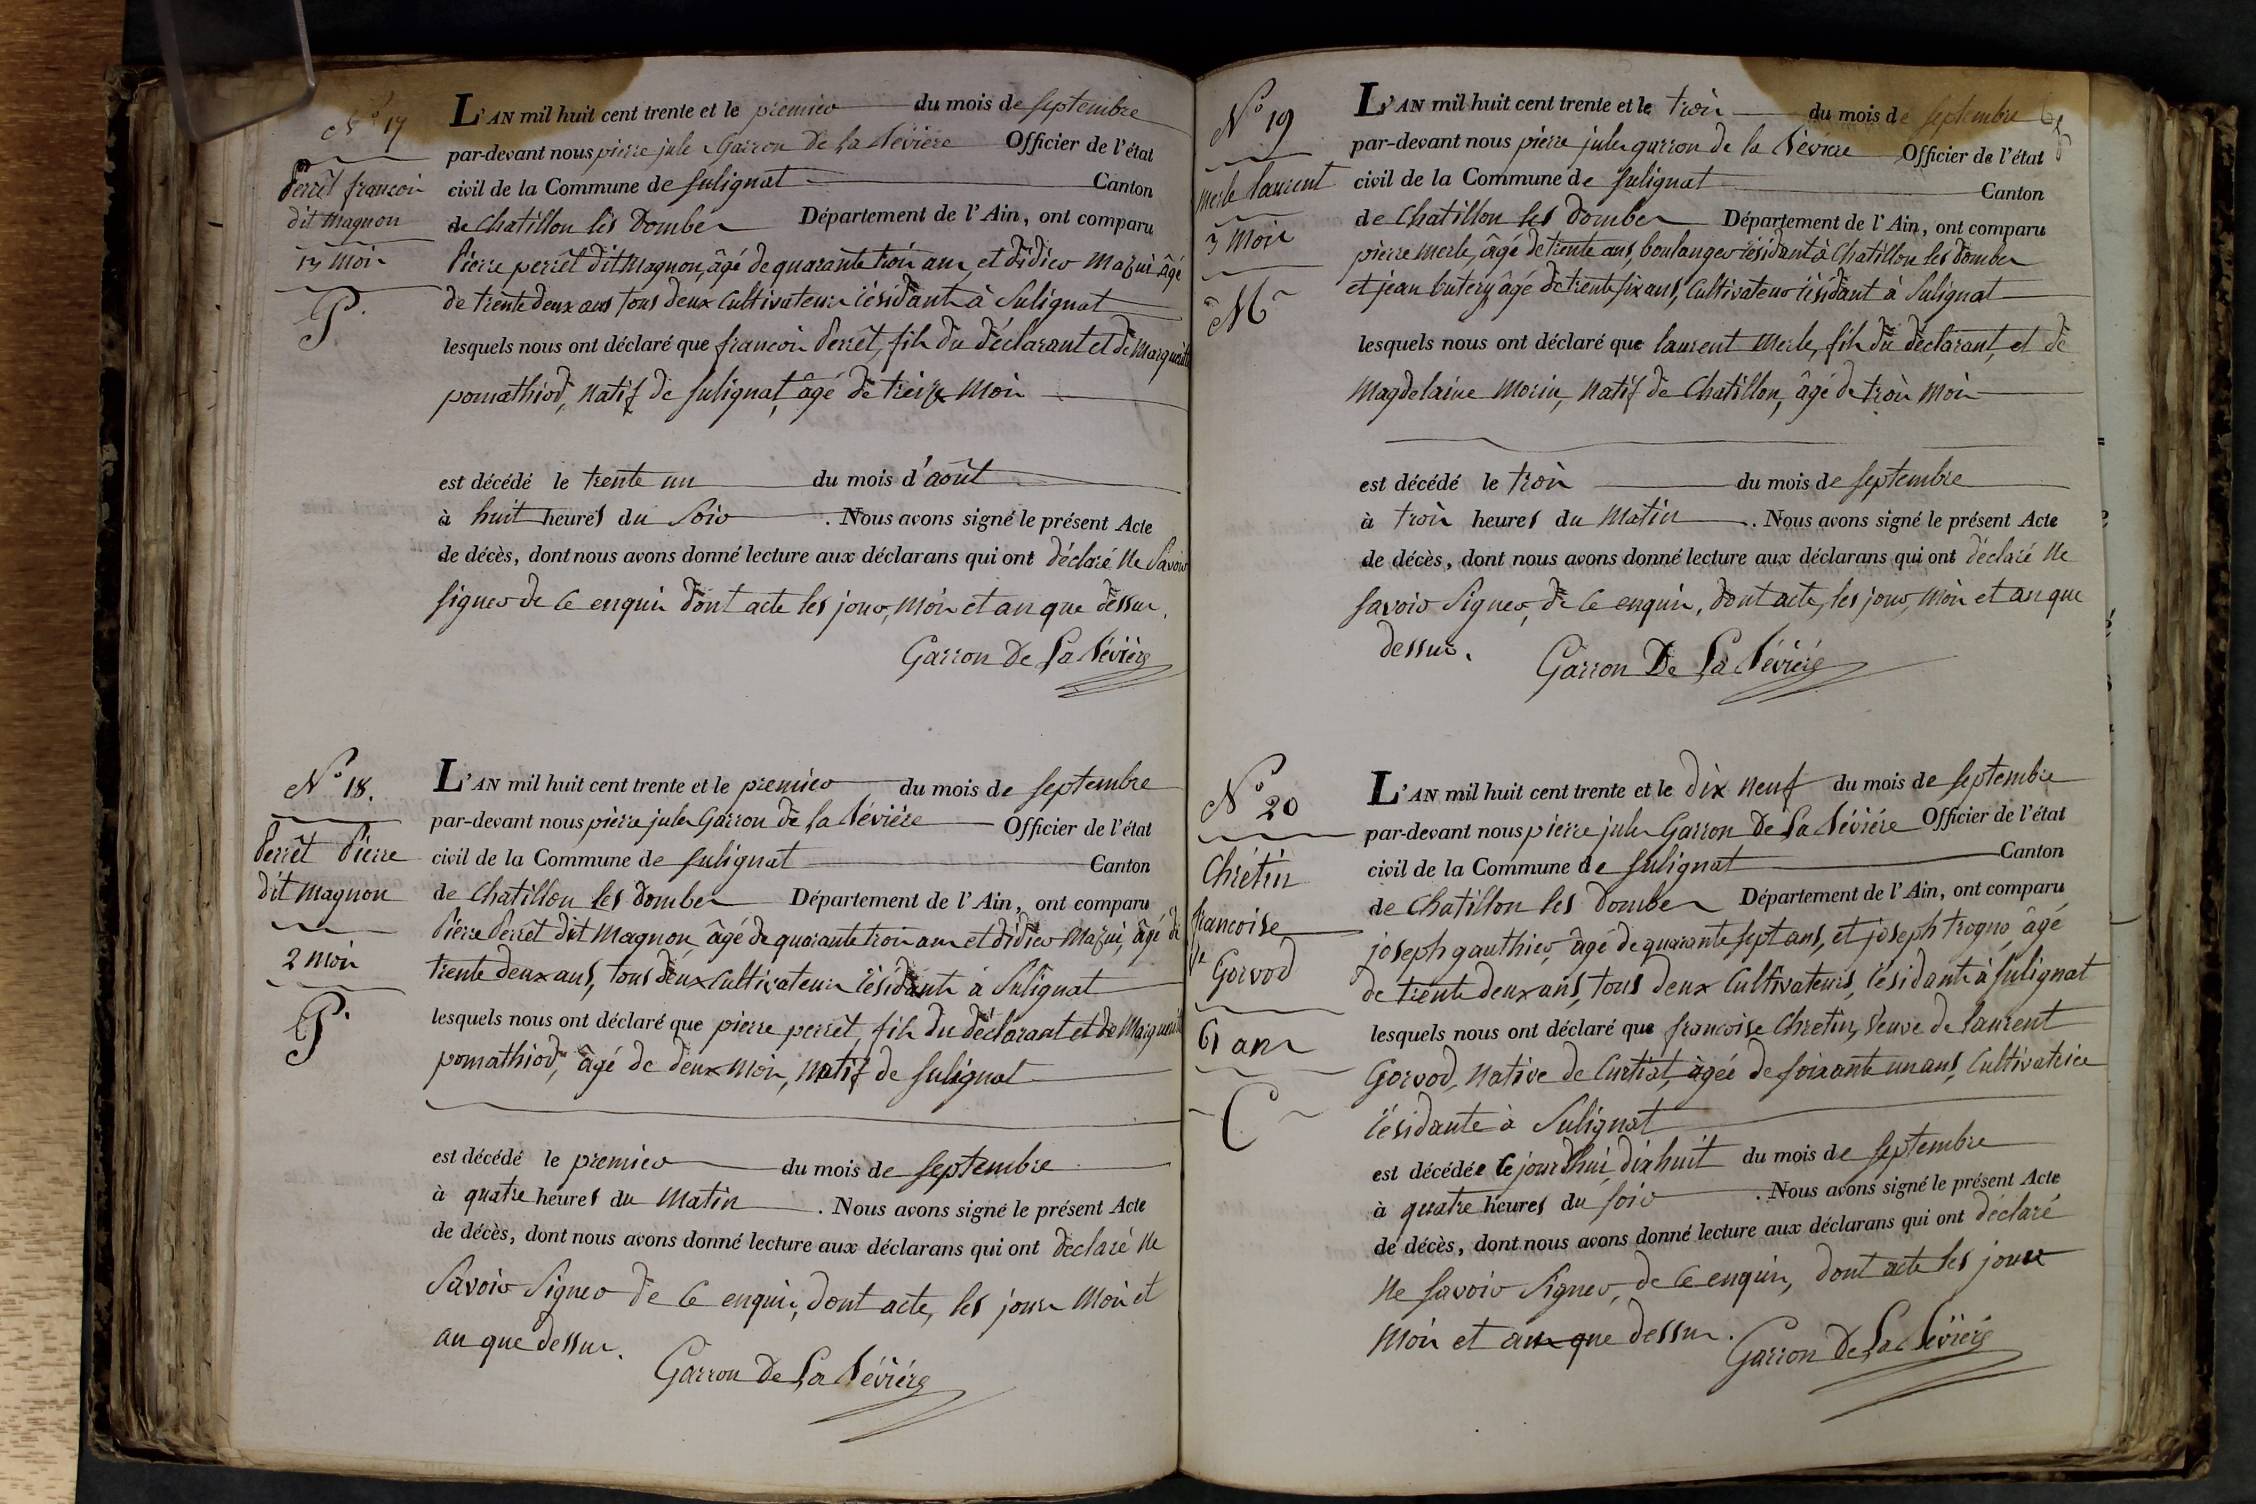 N° 17
Perrêt francois
dit Magnon
13 Mois
P.
L'AN mil huit cent trente et le premier du mois de septembre
par-devant nous pierre jules Garron De La Sévière Officier de l'état
civil de la Commune de sulignat Canton
de Chatillon les Dombes Département de l'Ain, ont comparu
Pierre perrêt dit Magnon, âgé de quarante trois ans, et didier Mazui âgé
de trente deux ans tous deux Cultivateurs résidants à Sulignat
lesquels nous ont déclaré que francois Perrêt, fils du déclarant et de Marguerite
pomathiod, natif de sulignat, âgé de treize Mois
est décédé le trente un du mois d'août
à huit heures du Soir . Nous avons signé le présent Acte
de décès, dont nous avons donné lecture aux déclarans qui ont déclaré ne Savoir
signer de ce enquis dont acte les jour, mois et an que dessus.
Garron De La Sévière
N° 18.
Perrêt Pierre
dit Magnon
2 Mois
P.
L'AN mil huit cent trente et le premier du mois de septembre
par-devant nous pierre jules Garron de la Sévière Officier de l'état
civil de la Commune de sulignat Canton
de Chatillon les Dombes Département de l'Ain, ont comparu
Pierre Perrêt dit Magnon, âgé de quarante trois ans et didier Mazui, âgé de
trente deux ans, tous deux Cultivateurs résidants à Sulignat
lesquels nous ont déclaré que pierre perrêt, fils du déclarant et de Marguerite
pomathiod, âgé de deux mois, natif de sulignat
est décédé le premier du mois de septembre
à quatre heures du Matin . Nous avons signé le présent Acte
de décès, dont nous avons donné lecture aux déclarans qui ont déclaré ne
Savoir Signer de ce enquis, dont acte, les jours Mois et
an que dessus.
Garron De La Sévière
N° 19
Merle laurent
3 Mois
M
L'AN mil huit cent trente et le trois du mois de septembre
par-devant nous pierre jules garron de la Sévière Officier de l'état
civil de la Commune de sulignat Canton
de Chatillon les Dombes Département de l'Ain, ont comparu
pierre Merle, âgé de trente ans, boulanger résidant à Chatillon les Dombes
et jean butery âgé de trente six ans, Cultivateur résidant à Sulignat
lesquels nous ont déclaré que laurent Merle, fils du déclarant, et de
Magdelaine Morin, natif de Chatillon, âgé de trois Mois
est décédé le trois du mois de septembre
à trois heures du Matin . Nous avons signé le présent Acte
de décès, dont nous avons donné lecture aux déclarans qui ont déclaré ne
savoir Signer, de ce enquis, dont acte, les jour, mois et an que
dessus.
Garron De La Sévière
N° 20
Chrétin
francoise
Ve Gorvod
61 ans
C
L'AN mil huit cent trente et le dix neuf du mois de septembre
par-devant nous pierre jules Garron De La Sévière Officier de l'état
civil de la Commune de sulignat Canton
de Chatillon les Dombes Département de l'Ain, ont comparu
joseph gauthier, âgé de quarante sept ans, et joseph trogno âgé
de trente deux ans, tous deux Cultivateurs, résidants à Sulignat
lesquels nous ont déclaré que francoise Chretin, Veuve de laurent
Gorvod, native de Curtiat, âgée de soixante un ans, Cultivatrice
résidante à Sulignat
est décédée le jour d'hui dix huit du mois de septembre
à quatre heures du soir . Nous avons signé le présent Acte
de décès, dont nous avons donné lecture aux déclarans qui ont déclaré
ne savoir Signer, de ce enquis, dont acte les jour
Mois et an que dessus.
Garron De La Sévière